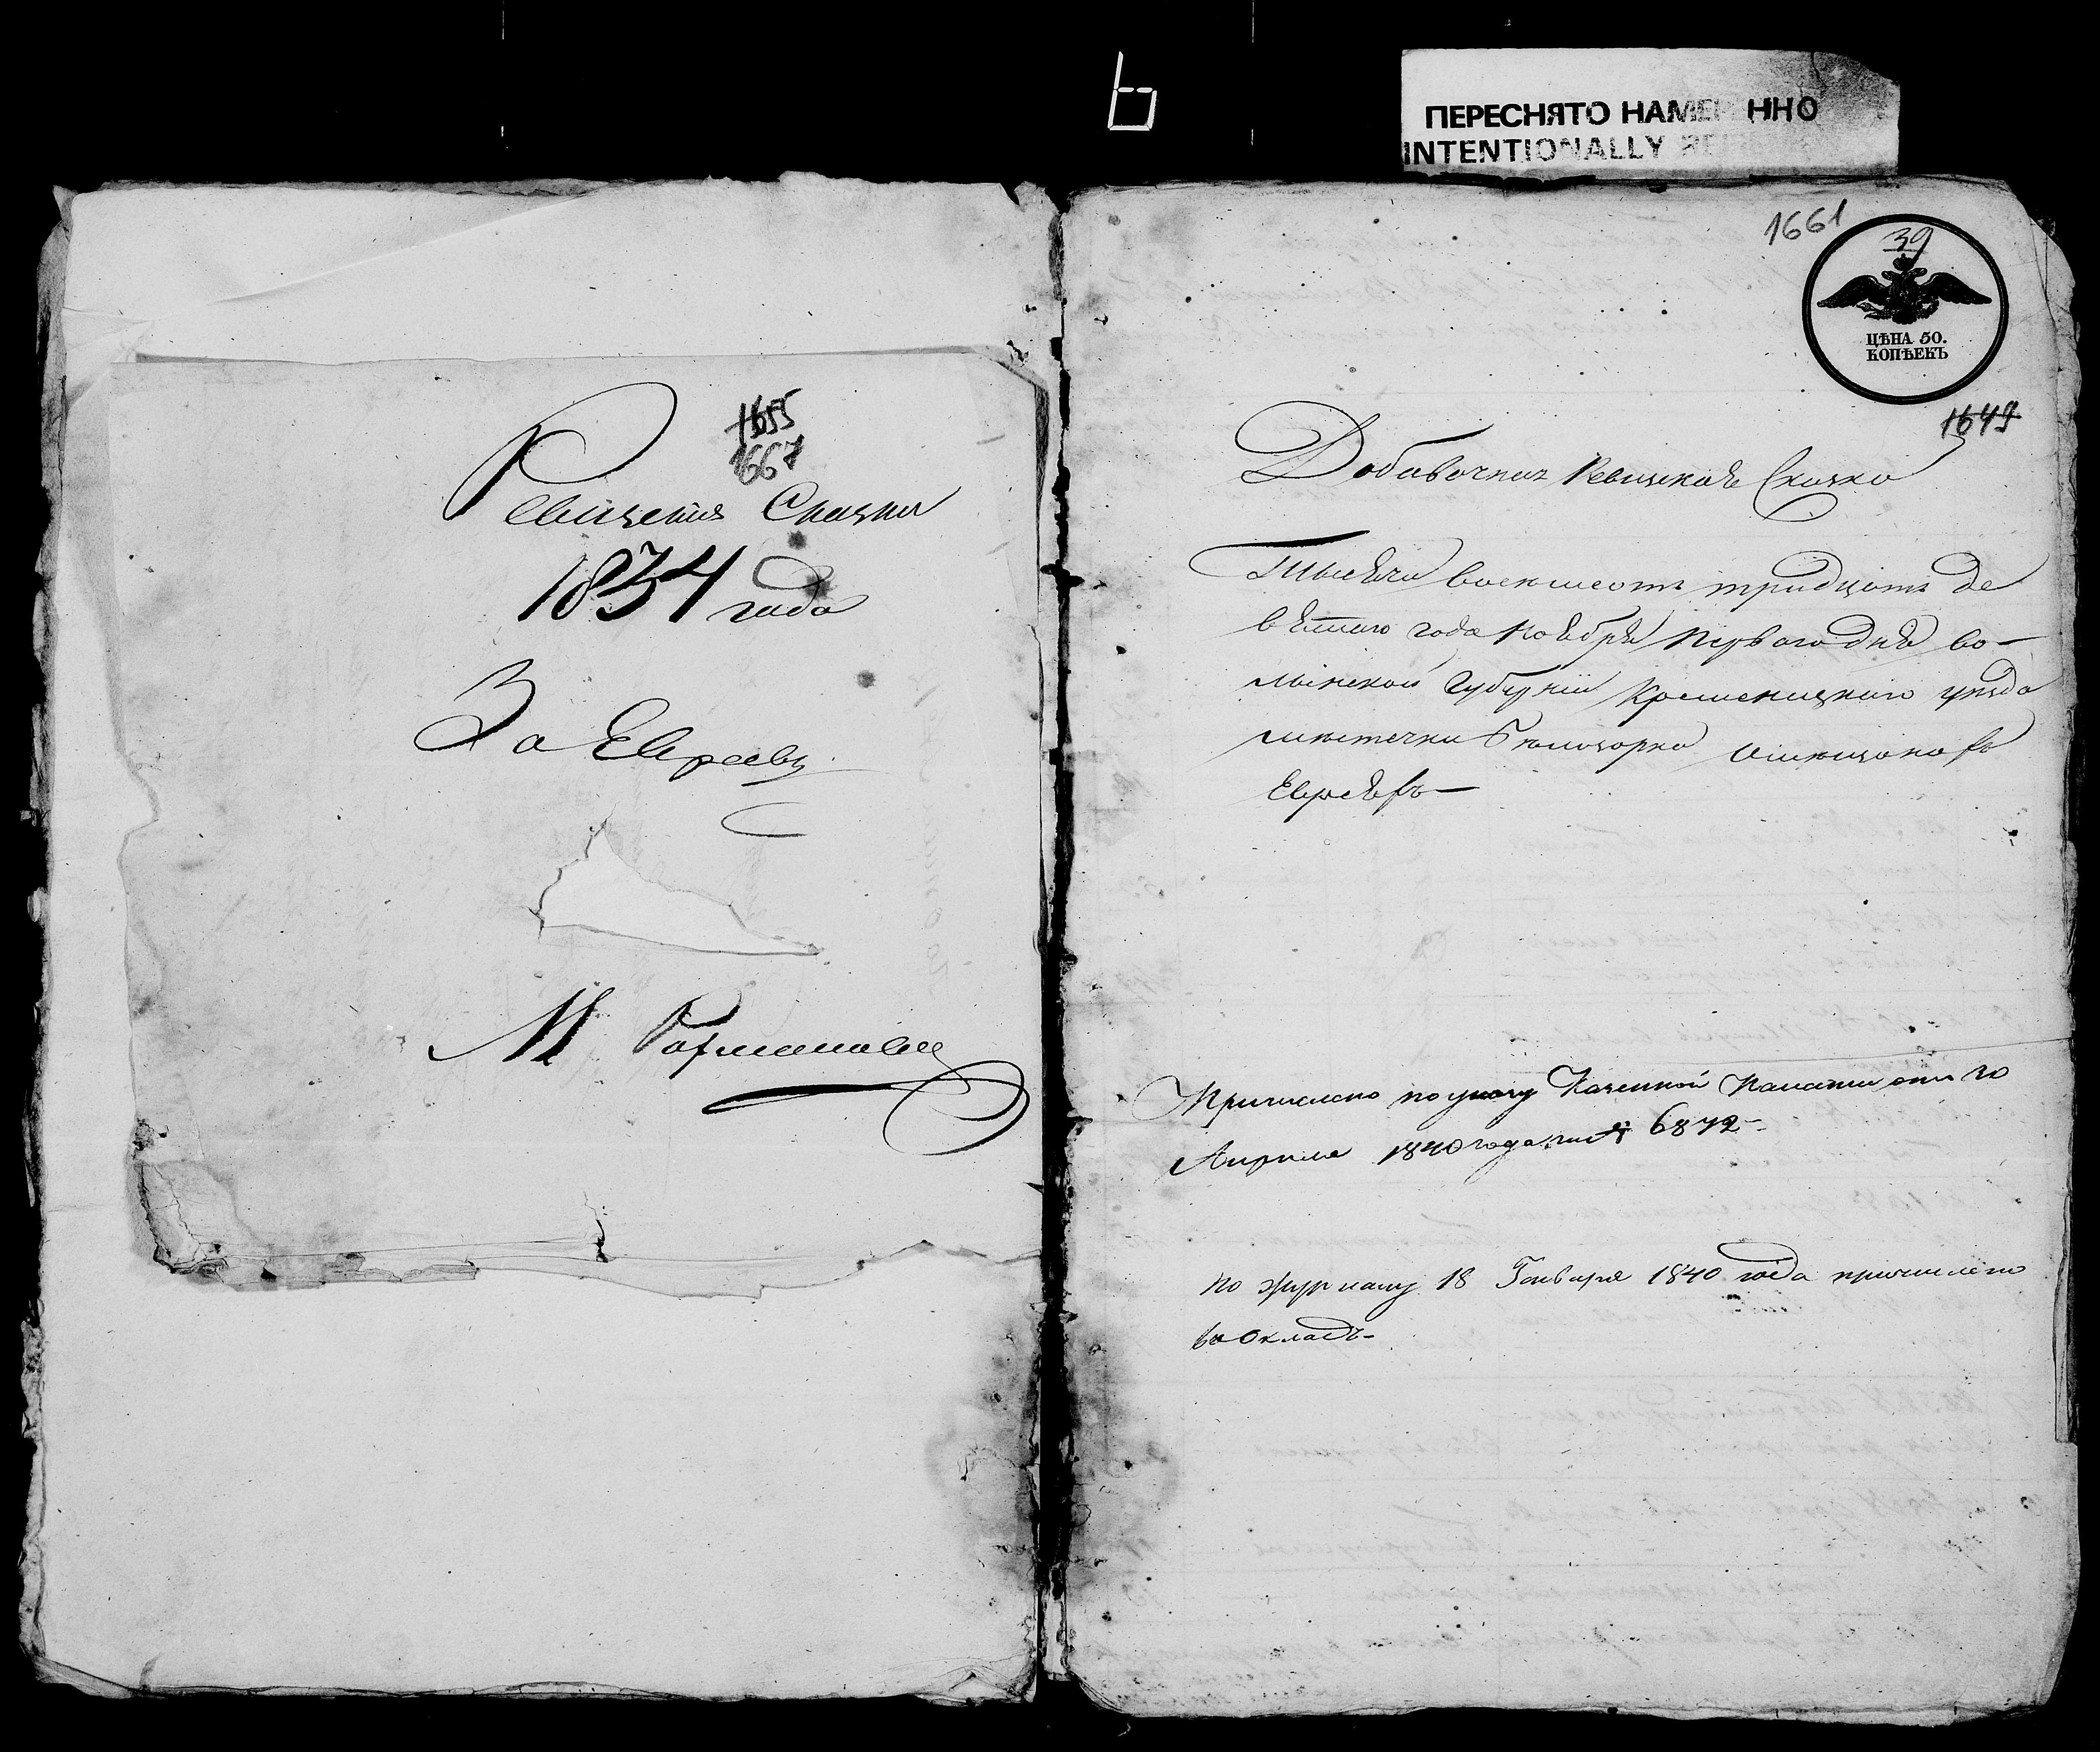 ь
ПЕРЕСНЯТО НАМЕ ННО
INTENTIONALLY
1655
1667
Ревизския Сказки
1834 года
За Евреевъ
М Рахмановец
1661
39
ЦѢНА 50.
КОПѢЕКЪ
1649
Добавочная Ревизская Сказка
Тысяча восемсотъ тридцать де
вятаго года Ноября Первого дня во-
лынской Губернии Кременецкого уезда
местечка Белозорки о
Евреяхъ
Причислено по указу Казенной Палаты отъ 20
Апреля 1840 года за № 6872
По журналу 18 Генваря 1840 года причислено
въ окладъ